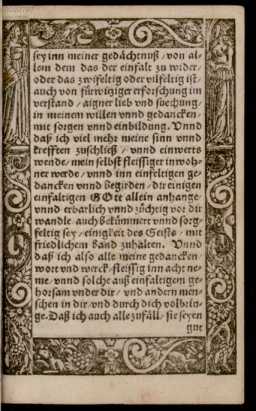 sey inn meiner gedächtnuß / von al-
lem dem das der einfalt zu wider /
oder das zwifeltig oder vilfeltig ist /
auch von fürwiziger erforschung im
verstand / aigner lieb vnd suechung /
in meinem willen vnnd gedancken
mit sorgen vnnd einbildung. Vnnd
daß ich viel mehr meine sinn vnnd
krefften zuschließ / vnnd einwerts
wende / mein selbst fleissiger inwoh-
ner werde / vnnd inn einfeltigen ge-
dancken vnnd begirden / dir einigen
einfaltigen GOtt allein anhange
vnnd erbarlich vnnd züchtig vor dir
wandle auch bekümmert vnnd sorg-
feltig sey / einigkeit des Geists / mit
friedlichem band zuhalten. Vnnd
daß ich also alle meine gedancken /
wort vnd werck / fleissig inn acht ne-
me / vnnd solche auß einfaltigem ge-
horsam vnder dir / vnd andern men-
schen in dir / vnd durch dich volbrin-
ge. Daß ich auch alle zufäll / sie seyen
gut